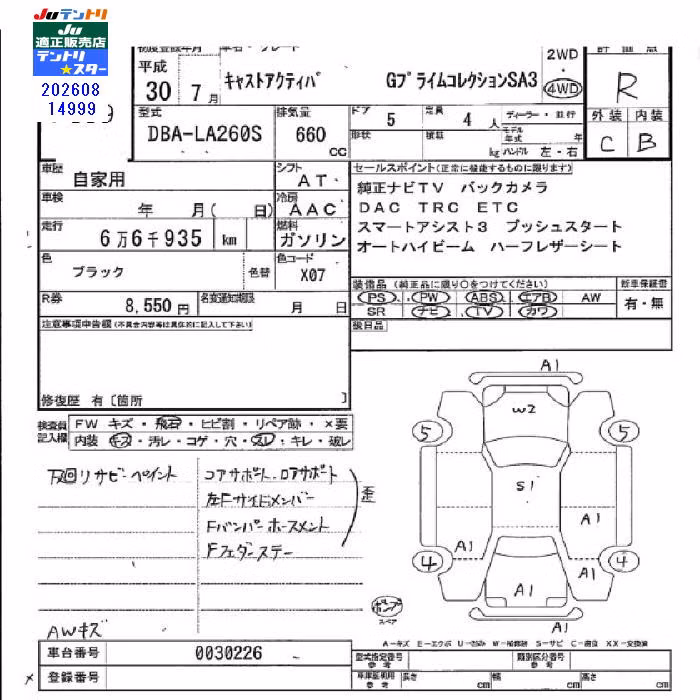 Juテントリ
Ju
適正販売店
テントリ
★スター
202608
14999
初度登録年月
車名・グレード
平成
30 7月
キャストアクティバ GプライムコレクションSA3
2WD
・
4WD
評価点
R
型式
DBA-LA260S
排気量
660
CC
ドア
5
定員
4 人
形状
積載
kg
ディーラー・並行
モデル
年式 年
ハンドル 左・右
外装 内装
C B
車歴
自家用
シフト
AT
車検
年 月( 日)
冷房
AAC
走行
6万6千935 km
燃料
ガソリン
色
ブラック
色替
色コード
X07
R券
8,550円
名変通知期限
月 日
セールスポイント(正常に機能するものに限ります)
純正ナビTV バックカメラ
DAC TRC ETC
スマートアシスト3 プッシュスタート
オートハイビーム ハーフレザーシート
装備品(純正品に限り○をつけてください)
PS PW ABS エアB AW
SR ナビ TV カワ
新車保証書
有・無
後日品
注意事項申告欄(不具合内容等は具体的に記入して下さい)
修復歴 有〔箇所 〕
検査員
記入欄
FW キズ・飛石・ヒビ割・リペア跡・×要
内装 キズ・汚レ・コゲ・穴・スレ・キレ・破レ
下廻リサビ・ペイント
コアサポート・ロアサポート
左Fサイドメンバー
Fバンパーホースメント
Fフェンダーステー
歪
AWキズ
A1
W2
5
5
S1
A1
A1
A1
4
4
A1
A1
スペア
A-キズ E-エクボ U-凹み W-補修跡 S-サビ C-腐食 XX-交換済
車台番号
0030226
登録番号
型式指定番号
参考
類別区分番号
参考
車庫証明用
参考
長さ cm
幅 cm
高さ cm